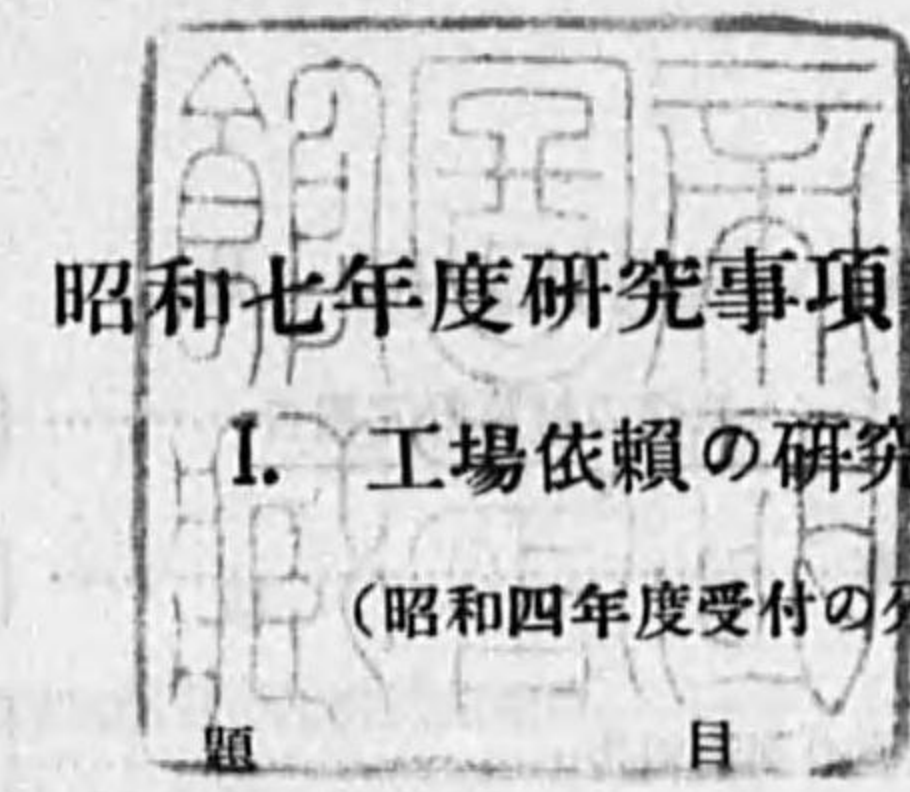 昭和七年度研究事項
I. 工場依賴の研究
(昭和四年度受付の
題目